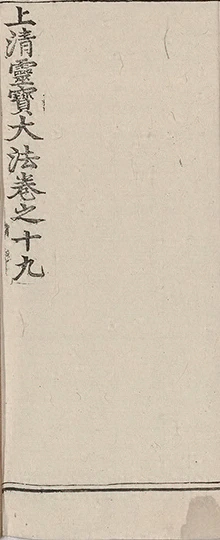 上清靈寶大法卷之十九